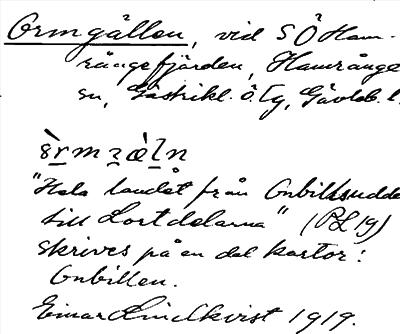 Ormgällen, vid SÖ Ham-
rångefjärden, Hamrånge
sn, Gästrikl. ö. Tg, Gävleb. l.
"Hela landet från Gnbillsudde
till Lortdelarna" (PL 19)
skrives på en del kartor:
Gnbillen.
Einar Lindkvist 1919.